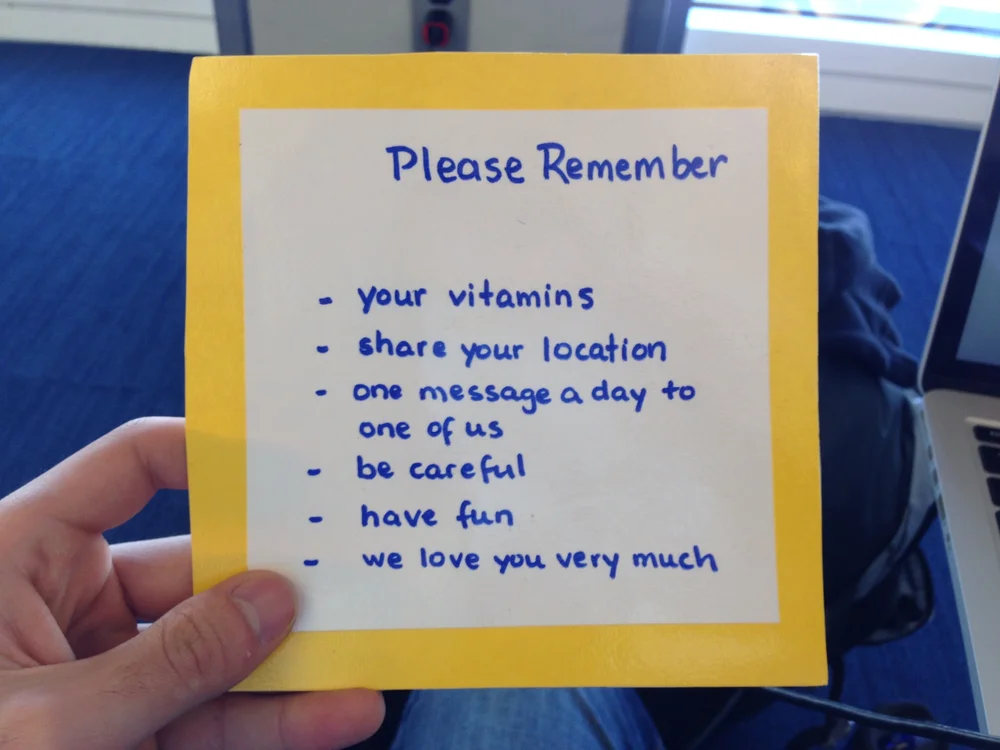 Please Remember
- your vitamins
- share your location
- one message a day to
one of us
- be careful
- have fun
- we love you very much